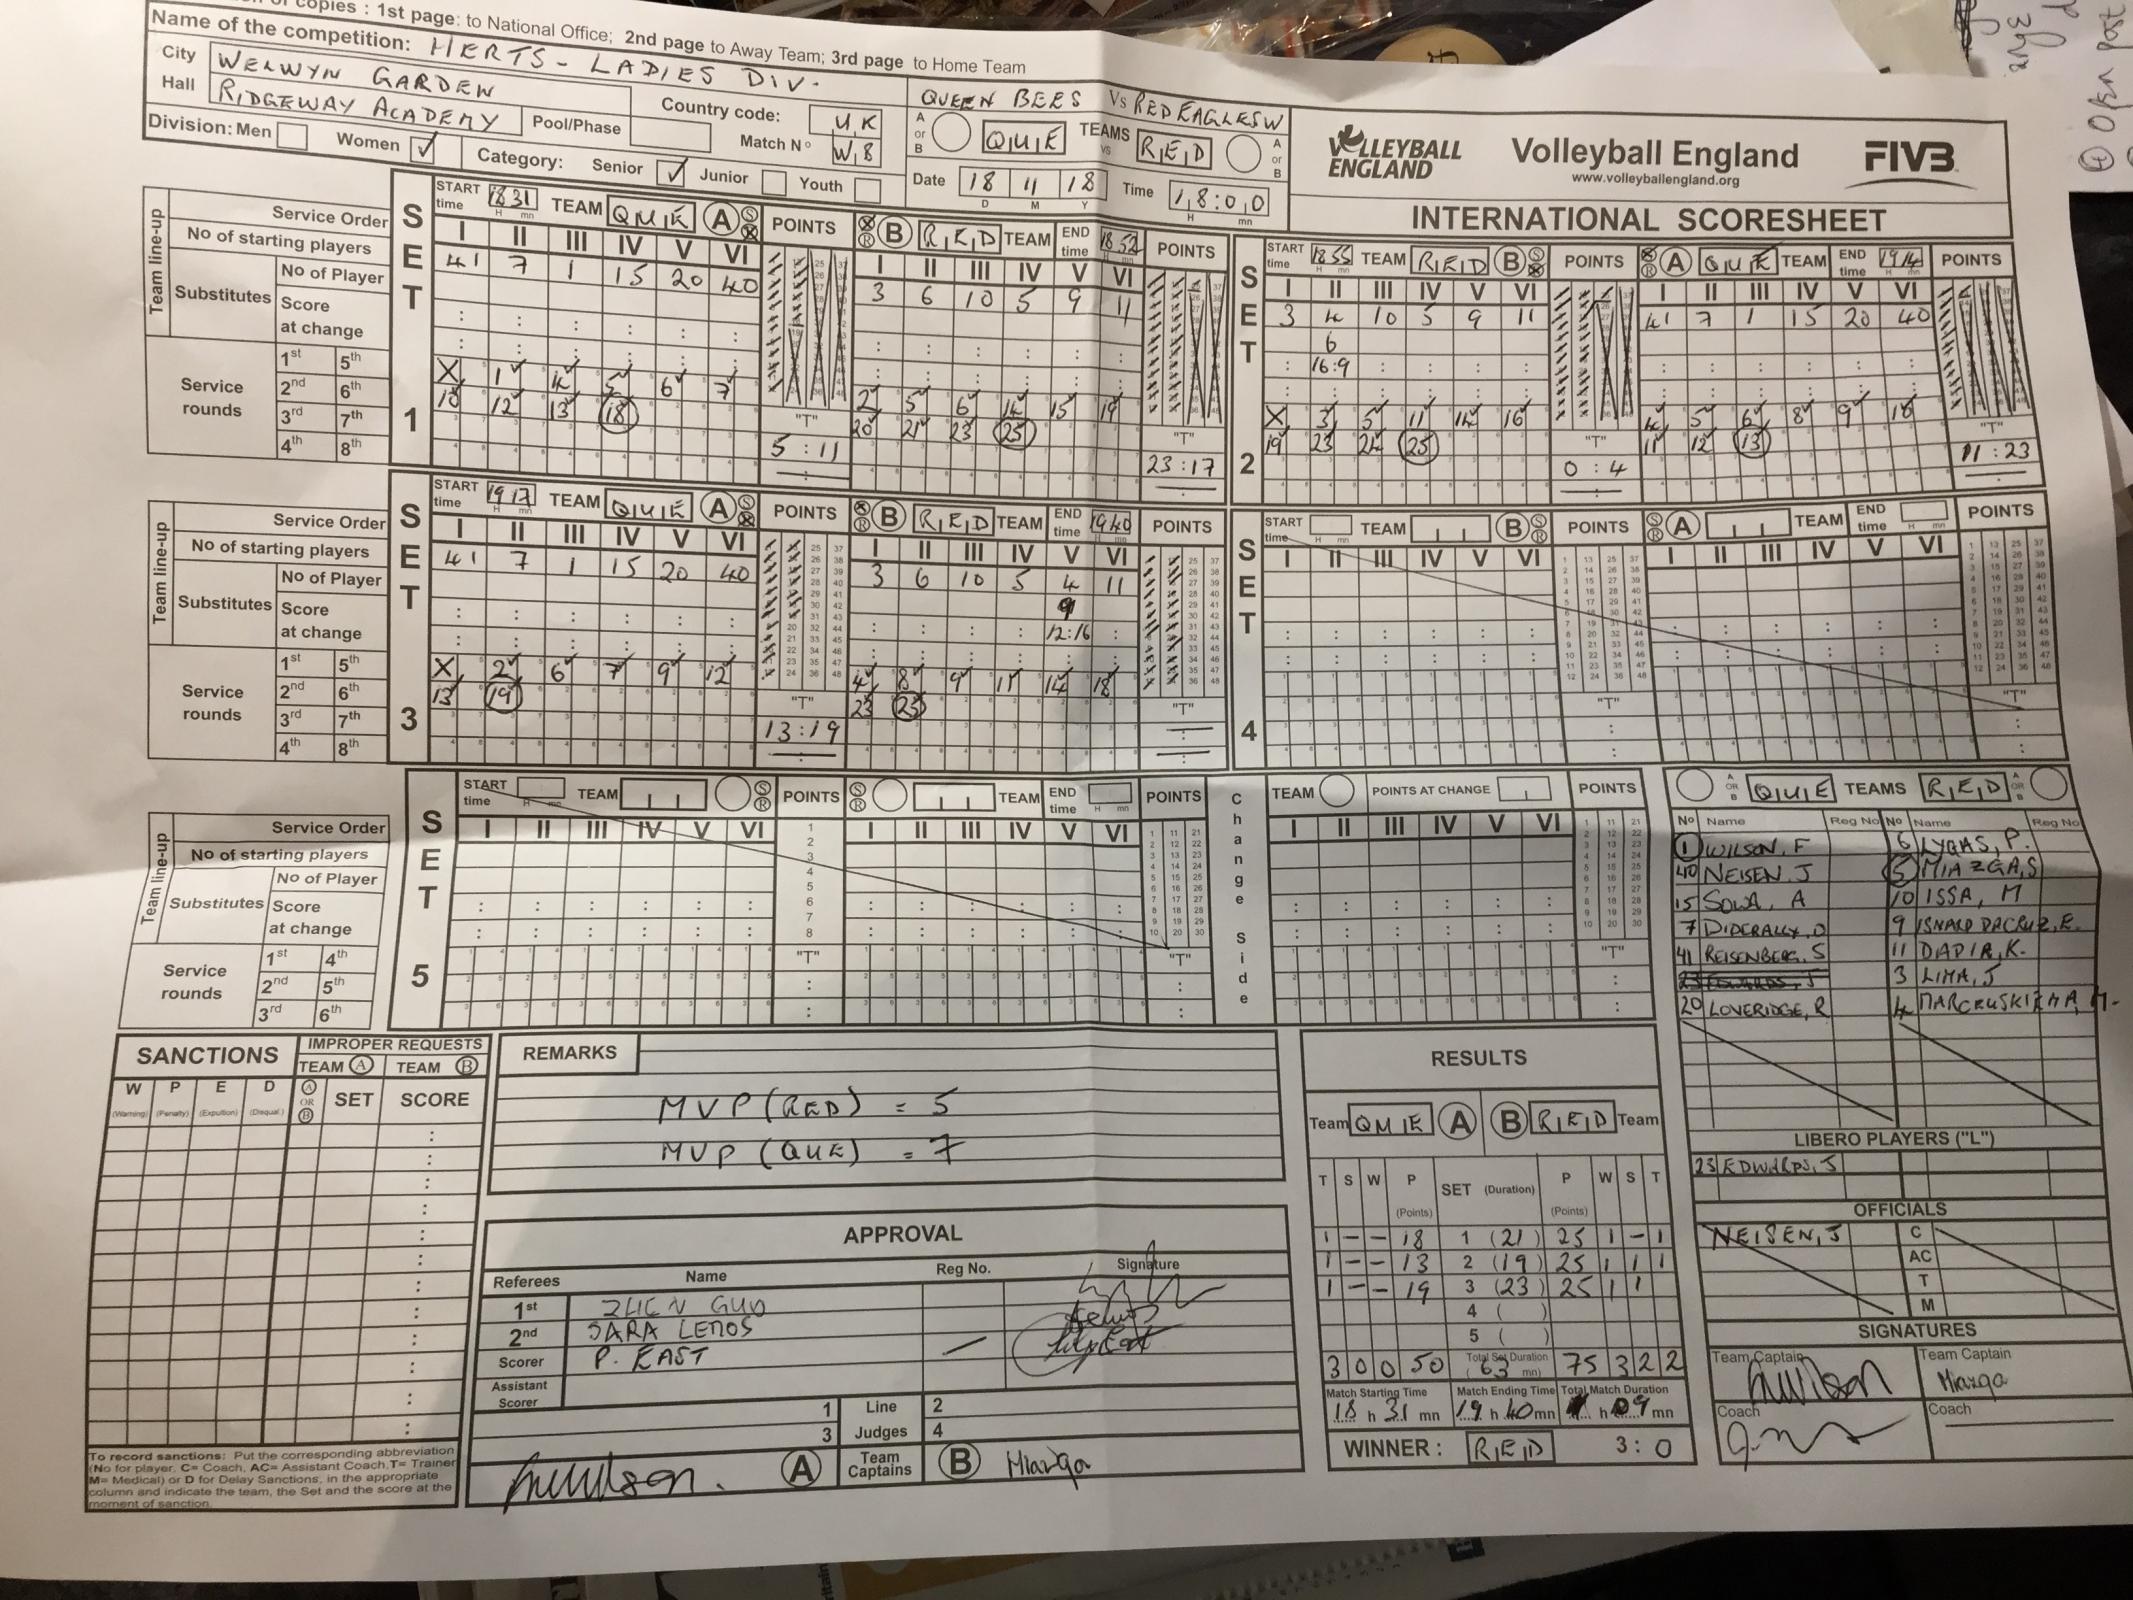 copies : 1st page: to National Office; 2nd page to Away Team; 3rd page to Home Team
Name of the competition: HERTS - LADIES DIV.
City WELWYN GARDEN
Hall RIDGEWAY ACADEMY
Country code: UK
Division: Men Women ✓ Pool/Phase Match N° W8
Category: Senior ✓ Junior Youth
QUEEN BEES Vs RED EAGLES W
A or B QUE TEAMS vs RED A or B
Date 18 11 18 Time 18:00
D M Y H mn
VOLLEYBALL ENGLAND
Volleyball England
www.volleyballengland.org
FIVB
INTERNATIONAL SCORESHEET
Team line-up
Service Order
No of starting players
Substitutes
No of Player
Score at change
Service rounds
1st 5th
2nd 6th
3rd 7th
4th 8th
SET 1
START time 18 31 TEAM QUE A POINTS
I II III IV V VI
41 7 1 15 20 40
X 1 4 5 6 7
10 12 13 18
"T"
5 : 11
B RED TEAM END time 18 52 POINTS
I II III IV V VI
3 6 10 5 9 11
2 5 6 14 15 19
20 21 23 25
"T"
23:17
SET 2
START time 18 55 TEAM RED B POINTS
I II III IV V VI
3 4 10 5 9 11
6
16:9
X 3 5 11 14 16
19 23 24 25
"T"
0 : 4
A QUE TEAM END time 19 14 POINTS
I II III IV V VI
41 7 1 15 20 40
4 5 6 8 9 10
11 12 13
"T"
11 : 23
Team line-up
Service Order
No of starting players
Substitutes
No of Player
Score at change
Service rounds
1st 5th
2nd 6th
3rd 7th
4th 8th
SET 3
START time 19 17 TEAM QUE A POINTS
I II III IV V VI
41 7 1 15 20 40
X 2 6 7 9 12
13 19
"T"
13:19
B RED TEAM END time 19 40 POINTS
I II III IV V VI
3 6 10 5 4 11
9
12:16
4 8 9 11 14 18
23 25
"T"
SET 4
START time TEAM B POINTS
I II III IV V VI
"T"
A TEAM END time POINTS
I II III IV V VI
"T"
Team line-up
Service Order
No of starting players
Substitutes
No of Player
Score at change
Service rounds
1st 4th
2nd 5th
3rd 6th
SET 5
START time TEAM POINTS
I II III IV V VI
"T"
TEAM END time POINTS
I II III IV V VI
"T"
Change Side
TEAM POINTS AT CHANGE POINTS
I II III IV V VI
"T"
A OR B QUE TEAMS RED A OR B
No Name Reg No No Name Reg No
1 WILSON, F 6 LYGAS, P.
40 NEISEN, J 5 MIAZGA, S
15 SOWA, A 10 ISSA, M
7 DIDERALLY, O 9 ISNARD DACRUZ, E.
41 REISENBERG, S 11 DADIA, K.
23 EDWARDS, J 3 LIMA, J
20 LOVERIDGE, R 4
LIBERO PLAYERS ("L")
23 EDWARDS, J
OFFICIALS
NEISEN, J C
AC
T
M
SIGNATURES
Team Captain Team Captain
Miazga
Coach Coach
SANCTIONS
IMPROPER REQUESTS
TEAM A TEAM B
W P E D A OR B SET SCORE
(Warning) (Penalty) (Expultion) (Disqual.)
To record sanctions: Put the corresponding abbreviation
(No for player, C= Coach, AC= Assistant Coach,T= Trainer
M= Medical) or D for Delay Sanctions, in the appropriate
column and indicate the team, the Set and the score at the
moment of sanction.
REMARKS
MVP (RED) = 5
MVP (QUE) = 7
APPROVAL
Referees Name Reg No. Signature
1st
2nd SARA LEMOS
Scorer P. EAST
Assistant Scorer
1 Line Judges 2
3 4
A Team Captains B Miazga
RESULTS
Team QUE A B RED Team
T S W P (Points) SET (Duration) P (Points) W S T
1 - - 18 1 (21) 25 1 - 1
1 - - 13 2 (19) 25 1 1 1
1 - - 19 3 (23) 25 1 1
4 ( )
5 ( )
3 0 0 50 Total Set Duration (63 mn) 75 3 2 2
Match Starting Time Match Ending Time Total Match Duration
18 h 31 mn 19 h 40 mn 1 h 09 mn
WINNER : RED 3:0